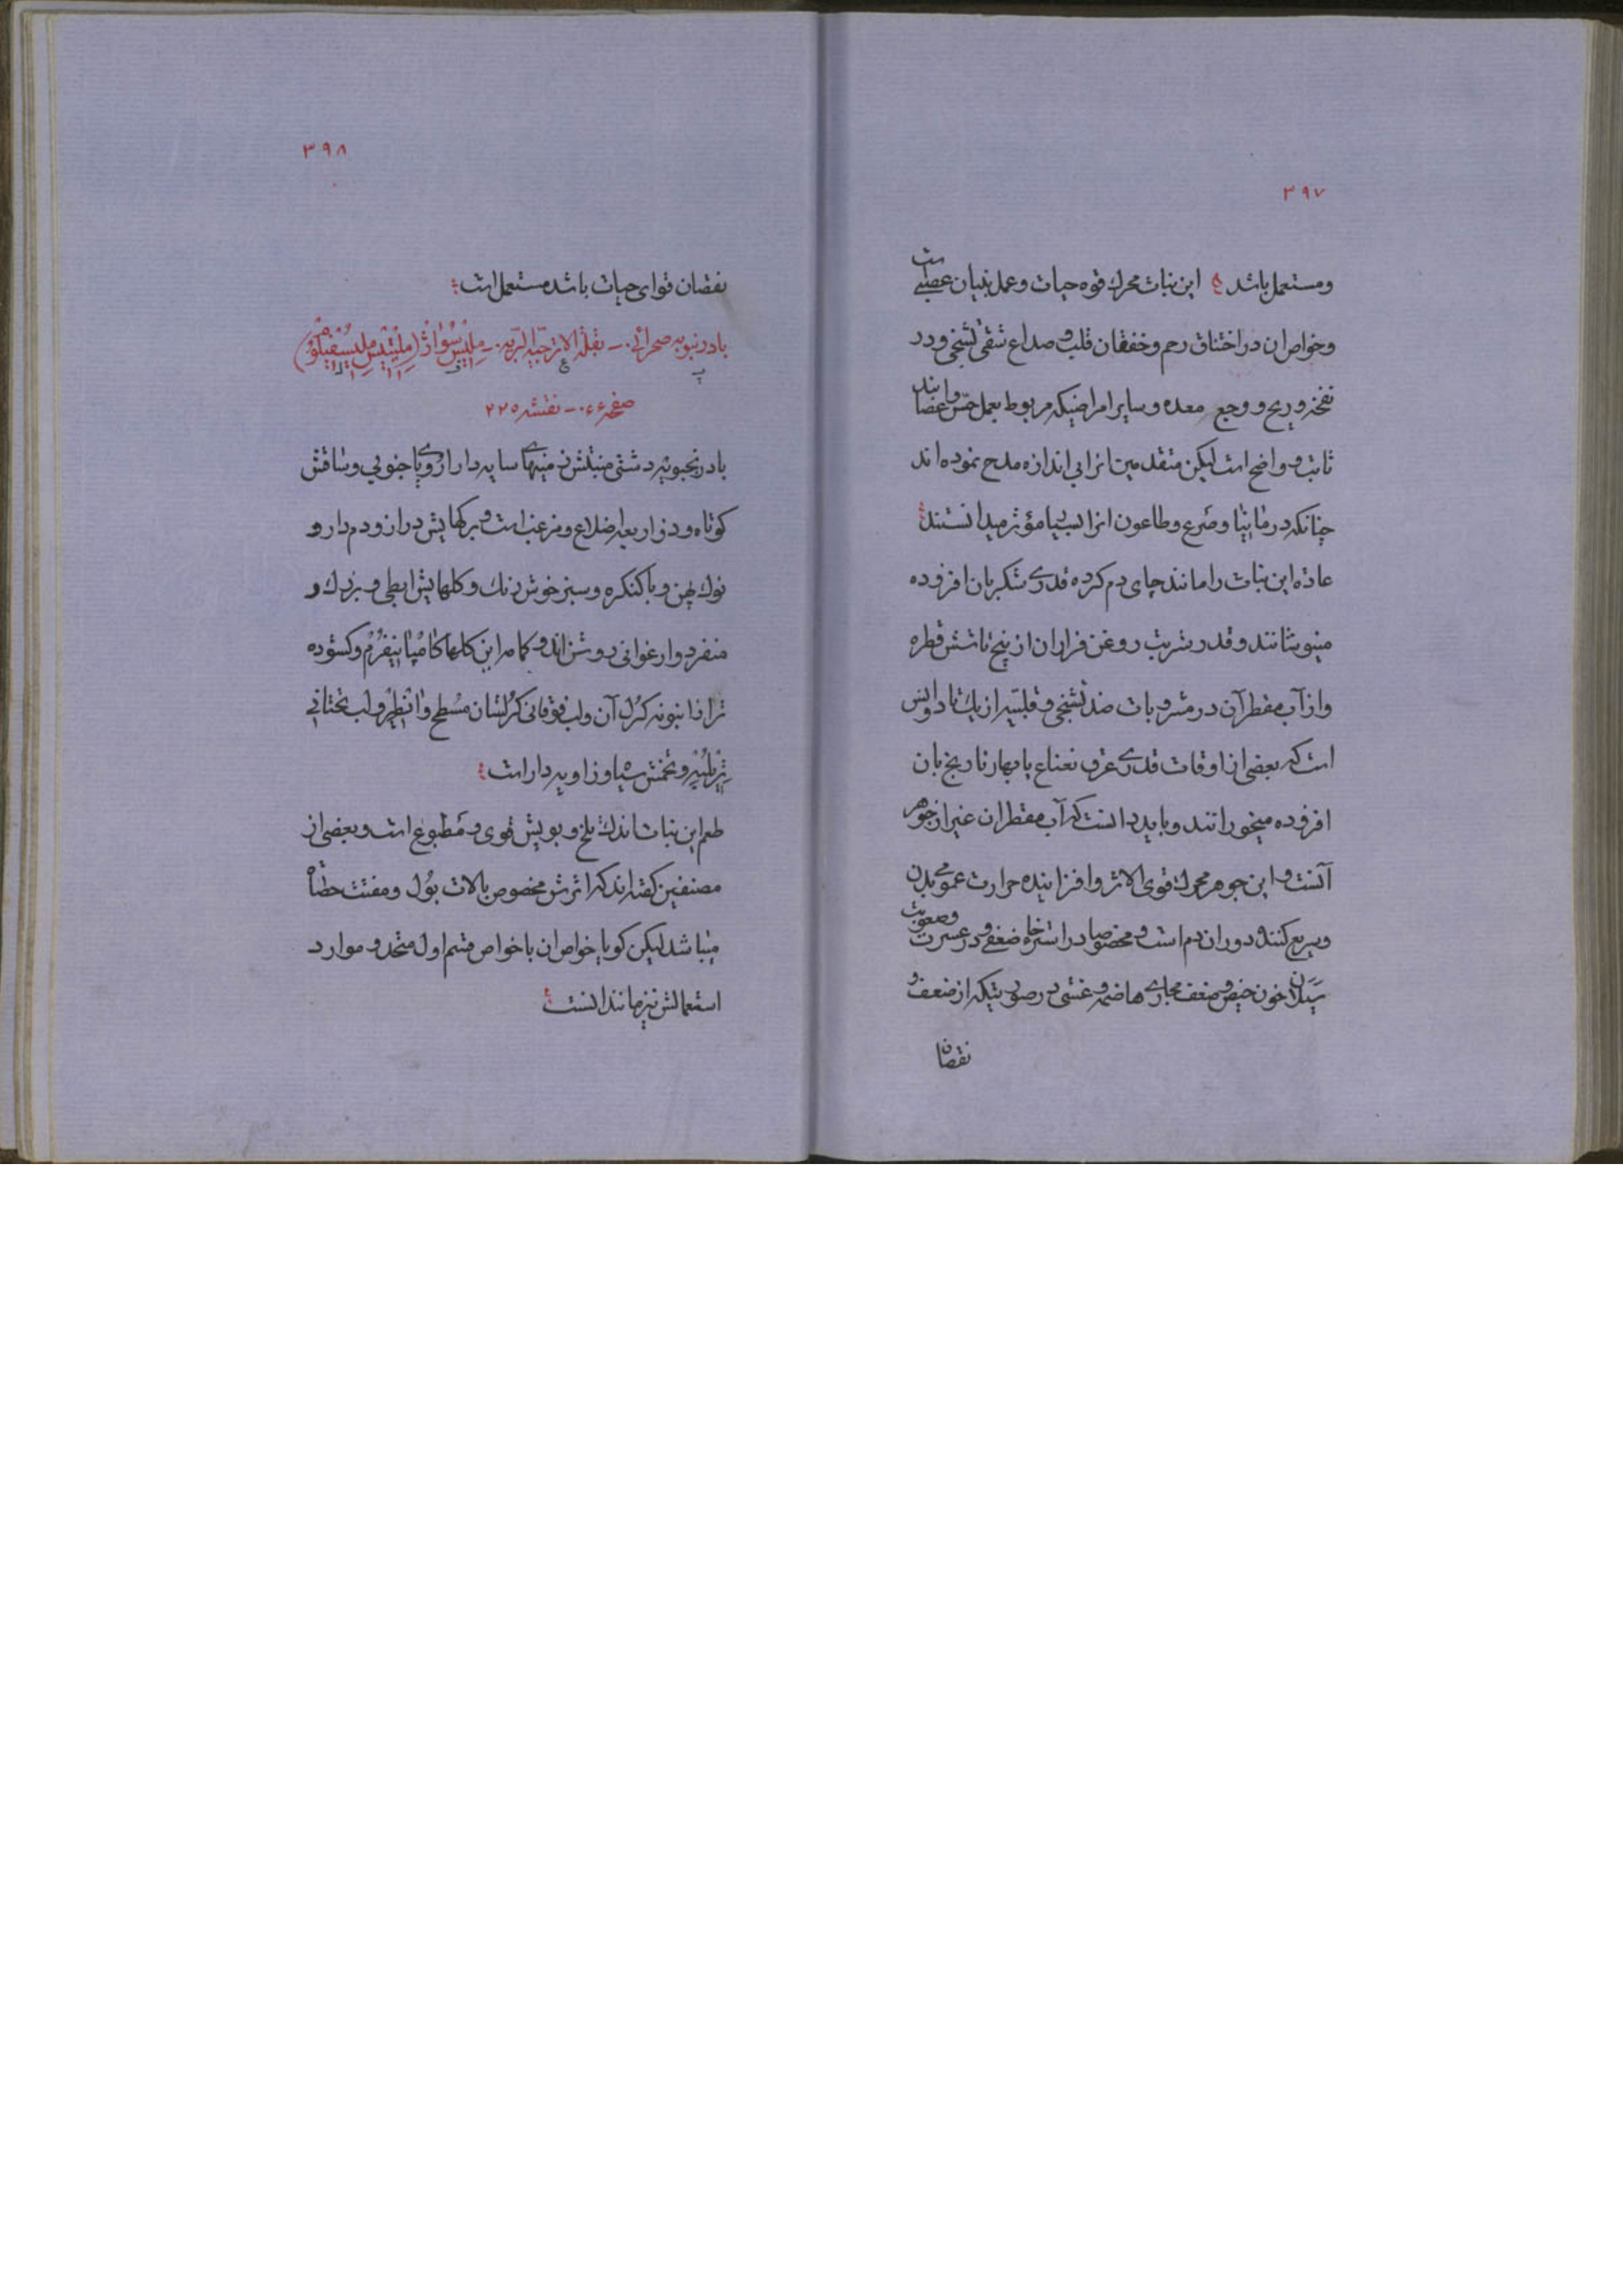 ۳۹۷
ومستعمل باشد این نبات محرك قوه حیات و عمل بنیان عصبی است
وخواص ان در اختناق رحم و خفقان قلب و صداع شقی تشنجی و درد
نفخه و ریح و وجع معده و سایر امراضیکه مربوط بعمل حس و اعصابند
ثابت و واضح است لیکن متقدمین انرا بی اندازه مدح نموده اند
چنانکه در مانیا و صرع و طاعون انرا بسیار مؤثر میدانستند
عادة این نبات را مانند چای دم کرده قدری شکر بان افزوده
مینوشانند و قدر شربت روغن فرار ان از پنج تا شش قطره
و از آب مقطر آن در مشروبات ضد تشنجی و قلبیه از یك تا دو انس
است که بعضی از اوقات قدری عرق نعناع یا بهار نارنج بان
افزوده میخورانند و باید دانست که آب مقطر ان غیر از جوهر
آنست و این جوهر محرك قوی الاثر و افزاینده حرارت عمومی بدن
و سریع کننده دوران دم است و مخصوصا در استرخاء ضعفی و در عسرت وصعوبت
سیلان خون حیض و ضعف مجاری هاضمه و غشی در صورتیکه از ضعف و
نقصان
۳۹۸
نقصان قوای حیات باشد مستعمل است
بادرنبویه صحرائی - بقلة الاترجیه البریه - ملیس سواژ (ملیتیس ملیسفیلوم)
صفحه ۰۶۶ - نقشه ۲۲۵
بادرنجبویه دشتی منبتش زمینهای سایه دار اروپا جنوبی و ساقش
کوتاه و ذوار بعة اضلاع و مزغب است و برکهایش دراز و دم دار و
نوك پهن و با کنکره و سبز خوش رنك و کلهایش ابطی و بزرك و
منفرد و ارغوانی روشن اند و کاسه این کلها کامپانیفرم و کشوده
تر از انبوبه کرل آن و لب فوقانی کرلشان مسطح و انطیر و لب تحتانی
تریلبه و تخمش سیاه و زاویه دار است
طعم این نبات اندك تلخ و بویش قوی و مطبوع است و بعضی از
مصنفین کفته اند که اثرش مخصوص بالات بول و مفتت حصاة
میباشد لیکن کویا خواص ان با خواص قسم اول متحد و موارد
استعمالش نیز مانند انست